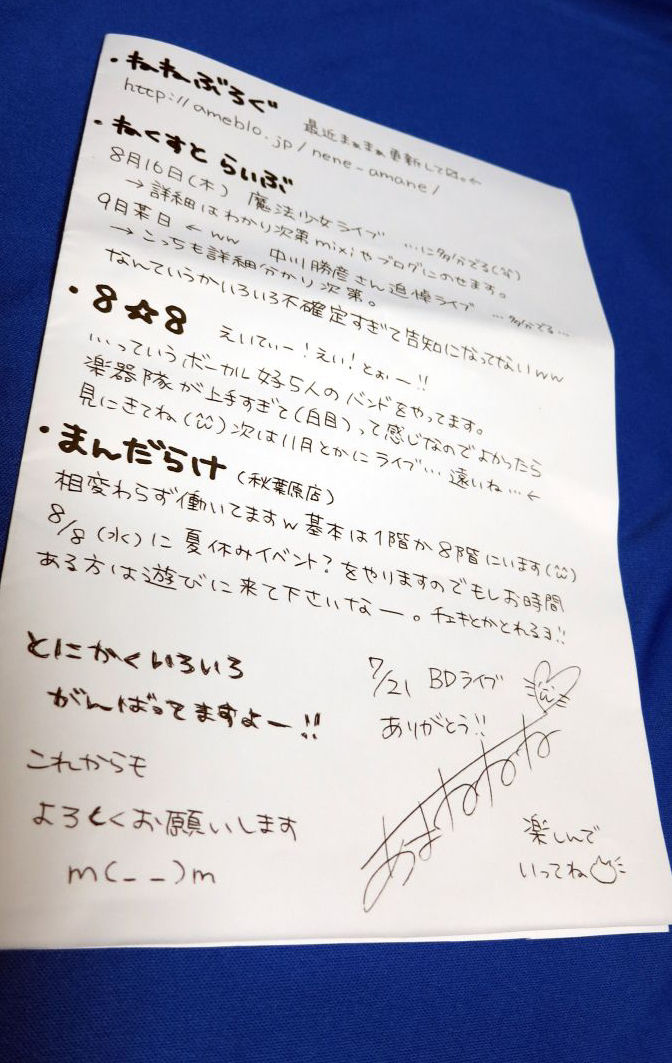 ・ねねぶろぐ
最近まぁまぁ更新してるよ。←
http://ameblo.jp/nene_amane/
・ねくすと らいぶ
8月16日(木) 魔法少女ライブ …に多分でる(笑)
→詳細はわかり次第mixiやブログにのせます。
9月某日 ← ww 中川勝彦さん追悼ライブ …多分でる…
→こっちも詳細分かり次第。
なんていうかいろいろ不確定すぎて告知になってないww
・8☆8 えいてぃー!えい!とぉー!!
…っていうボーカル女子5人のバンドをやってます。
楽器隊が上手すぎて(白目)って感じなのでよかったら
見にきてね(ü)次は11月とかにライブ… 遠いね…←
・まんだらけ(秋葉原店)
相変わらず働いてますw基本は1階か8階にいます(ü)
8/8(水)に夏休みイベント?をやりますのでもしお時間
ある方は遊びに来て下さいなー。チェキとかとれるヨ!!
とにかくいろいろ
がんばってますよー!!
これからも
よろしくお願いします
m(_ _)m
7/21 BDライブ
ありがとう!!
あまねねね
楽しんで
いってね